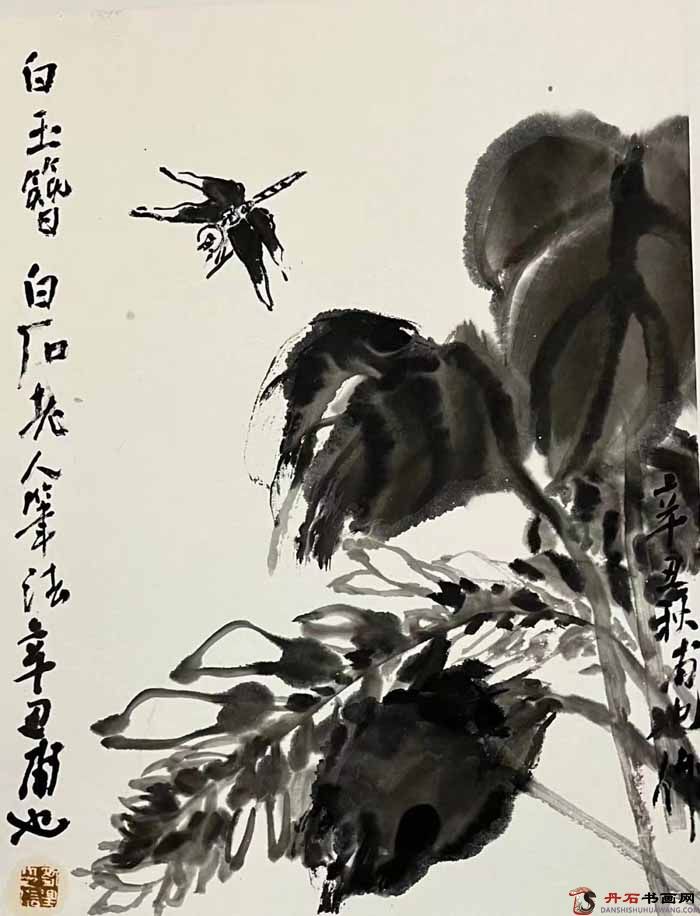 白玉簪白石老人笔法辛丑甫也
辛丑秋甫也作
丹石书画网
DANSHISHUHUAWANG.COM